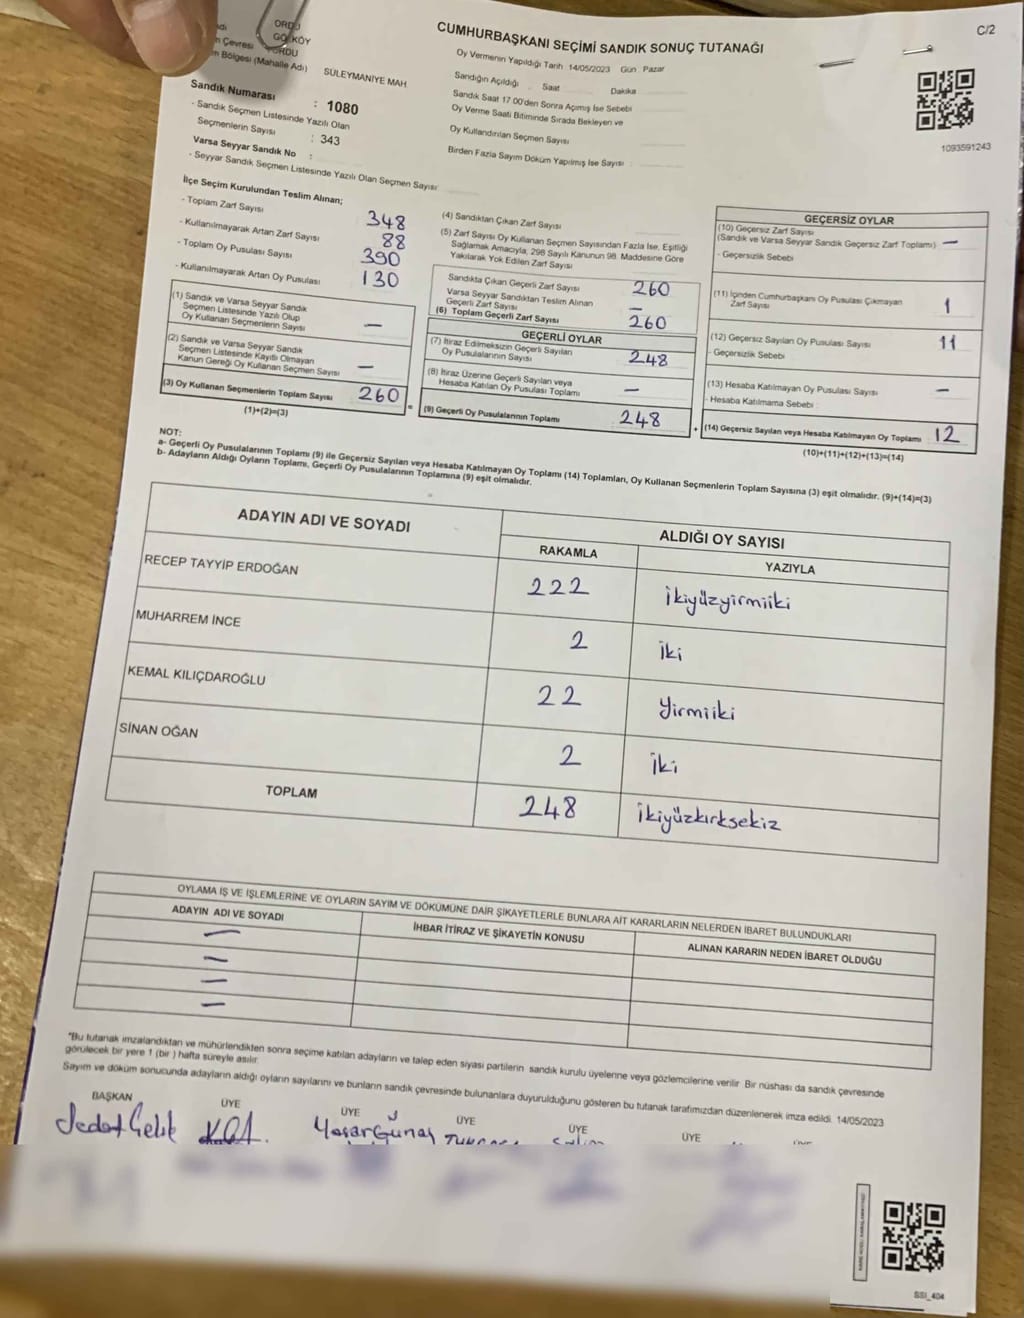 C/2
CUMHURBAŞKANI SEÇİMİ SANDIK SONUÇ TUTANAĞI
ORDU
GÖLKÖY
ORDU
n Çevresi
n Bölgesi (Mahalle Adı) SÜLEYMANİYE MAH.
Sandık Numarası : 1080
- Sandık Seçmen Listesinde Yazılı Olan
Seçmenlerin Sayısı : 343
Varsa Seyyar Sandık No :
- Seyyar Sandık Seçmen Listesinde Yazılı Olan Seçmen Sayısı
Oy Vermenin Yapıldığı Tarih :14/05/2023 Gün : Pazar
Sandığın Açıldığı : Saat Dakika
Sandık Saat 17.00'den Sonra Açılmış İse Sebebi
Oy Verme Saati Bitiminde Sırada Bekleyen ve
Oy Kullandırılan Seçmen Sayısı
Birden Fazla Sayım Döküm Yapılmış İse Sayısı :
1093591243
İlçe Seçim Kurulundan Teslim Alınan;
- Toplam Zarf Sayısı 348
- Kullanılmayarak Artan Zarf Sayısı 88
- Toplam Oy Pusulası Sayısı 390
- Kullanılmayarak Artan Oy Pusulası 130
(1) Sandık ve Varsa Seyyar Sandık
Seçmen Listesinde Yazılı Olup
Oy Kullanan Seçmenlerin Sayısı —
(2) Sandık ve Varsa Seyyar Sandık
Seçmen Listesinde Kayıtlı Olmayan
Kanun Gereği Oy Kullanan Seçmen Sayısı —
(3) Oy Kullanan Seçmenlerin Toplam Sayısı 260
(1)+(2)=(3)
(4) Sandıktan Çıkan Zarf Sayısı
(5) Zarf Sayısı Oy Kullanan Seçmen Sayısından Fazla İse, Eşitliği
Sağlamak Amacıyla; 298 Sayılı Kanunun 98. Maddesine Göre
Yakılarak Yok Edilen Zarf Sayısı
Sandıkta Çıkan Geçerli Zarf Sayısı 260
Varsa Seyyar Sandıktan Teslim Alınan
Geçerli Zarf Sayısı —
(6) Toplam Geçerli Zarf Sayısı 260
GEÇERLİ OYLAR
(7) İtiraz Edilmeksizin Geçerli Sayılan
Oy Pusulalarının Sayısı 248
(8) İtiraz Üzerine Geçerli Sayılan veya
Hesaba Katılan Oy Pusulası Toplamı —
= (9) Geçerli Oy Pusulalarının Toplamı 248
GEÇERSİZ OYLAR
(10) Geçersiz Zarf Sayısı
(Sandık ve Varsa Seyyar Sandık Geçersiz Zarf Toplamı) —
- Geçersizlik Sebebi
(11) İçinden Cumhurbaşkanı Oy Pusulası Çıkmayan
Zarf Sayısı 1
(12) Geçersiz Sayılan Oy Pusulası Sayısı 11
- Geçersizlik Sebebi
(13) Hesaba Katılmayan Oy Pusulası Sayısı —
- Hesaba Katılmama Sebebi :
+ (14) Geçersiz Sayılan veya Hesaba Katılmayan Oy Toplamı 12
(10)+(11)+(12)+(13)=(14)
NOT:
a- Geçerli Oy Pusulalarının Toplamı (9) ile Geçersiz Sayılan veya Hesaba Katılmayan Oy Toplamı (14) Toplamları, Oy Kullanan Seçmenlerin Toplam Sayısına (3) eşit olmalıdır. (9)+(14)=(3)
b- Adayların Aldığı Oyların Toplamı, Geçerli Oy Pusulalarının Toplamına (9) eşit olmalıdır.
ADAYIN ADI VE SOYADI ALDIĞI OY SAYISI
RAKAMLA YAZIYLA
RECEP TAYYİP ERDOĞAN 222 ikiyüzyirmiiki
MUHARREM İNCE 2 iki
KEMAL KILIÇDAROĞLU 22 Yirmiiki
SİNAN OĞAN 2 iki
TOPLAM 248 ikiyüzkırksekiz
OYLAMA İŞ VE İŞLEMLERİNE VE OYLARIN SAYIM VE DÖKÜMÜNE DAİR ŞİKAYETLERLE BUNLARA AİT KARARLARIN NELERDEN İBARET BULUNDUKLARI
ADAYIN ADI VE SOYADI İHBAR İTİRAZ VE ŞİKAYETİN KONUSU ALINAN KARARIN NEDEN İBARET OLDUĞU
—
—
—
—
"Bu tutanak imzalandıktan ve mühürlendikten sonra seçime katılan adayların ve talep eden siyasi partilerin sandık kurulu üyelerine veya gözlemcilerine verilir. Bir nüshası da sandık çevresinde
görülecek bir yere 1 (bir) hafta süreyle asılır.
Sayım ve döküm sonucunda adayların aldığı oyların sayılarını ve bunların sandık çevresinde bulunanlara duyurulduğunu gösteren bu tutanak tarafımızdan düzenlenerek imza edildi. 14/05/2023
BAŞKAN ÜYE ÜYE ÜYE ÜYE ÜYE
Sedat Çelik Yaşar Günaş
SSI_404